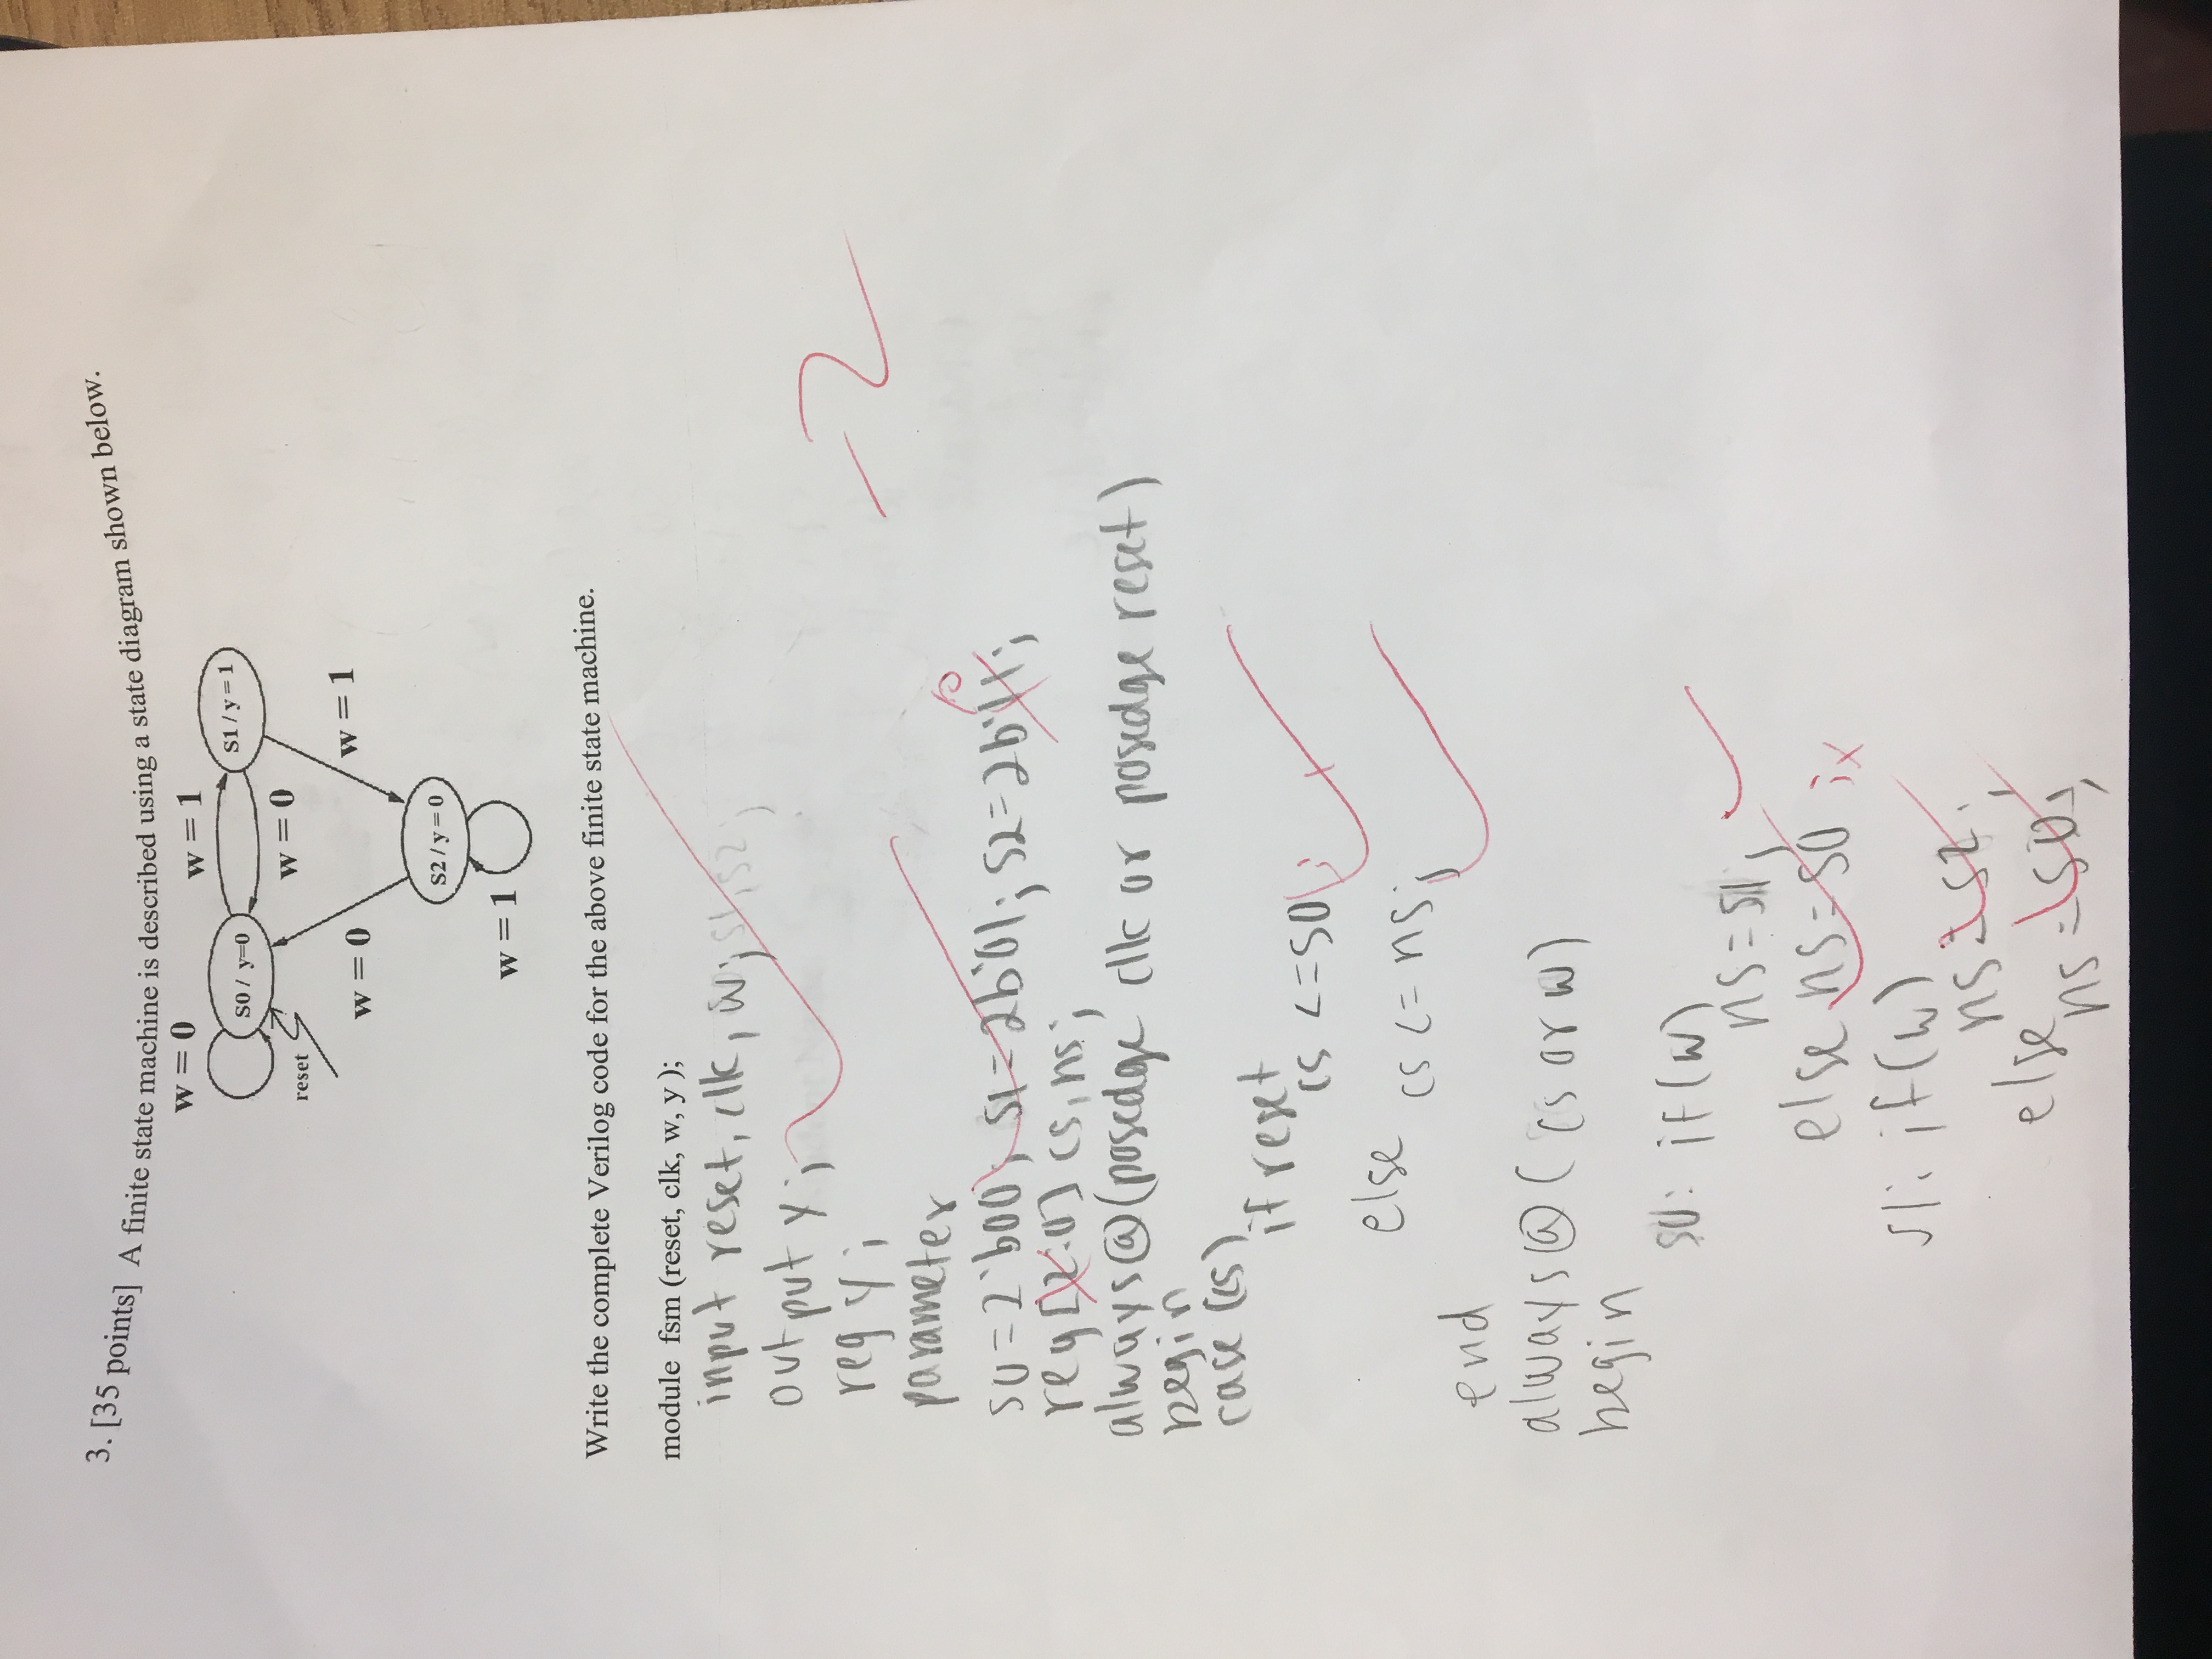 3. [35 points] A finite state machine is described using a state diagram shown below.
w = 0
w = 1
S0 / y=0
S1 / y = 1
w = 0
reset
w = 0
w = 1
S2 / y = 0
w = 1
Write the complete Verilog code for the above finite state machine.
module fsm (reset, clk, w, y );
input reset, clk, w; s1, s2;
output y;
reg y;
-2
parameter
10
S0 = 2'b00; S1 = 2b'01; S2 = 2b'11;
reg [2:0] cs, ns;
always@(posedge clk or posedge reset)
begin
case (cs)
if reset
cs <= S0 ;
else
cs <= ns;
end
always@( cs or w)
begin
S0: if(w)
ns = S1;
else ns = S0 ; x
S1: if(w)
ns = S2;
else
ns = S0;